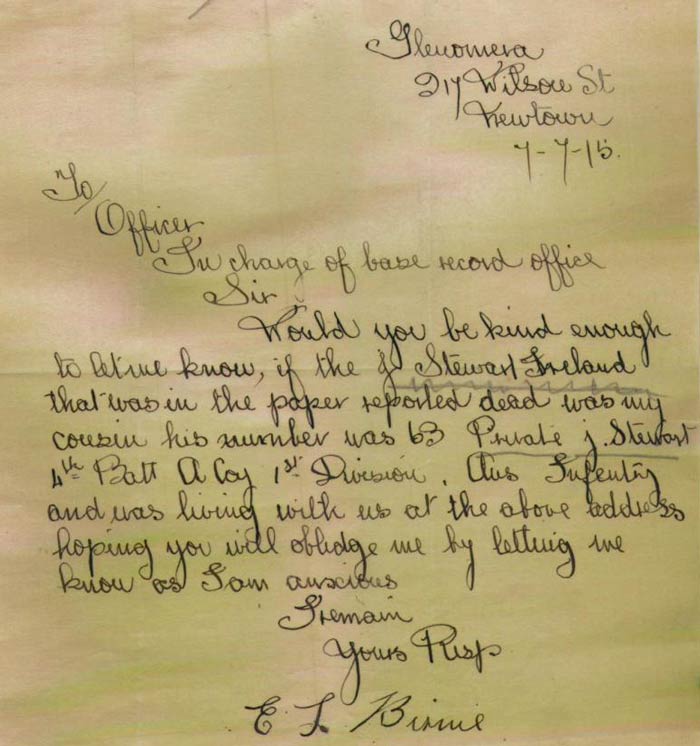 Glenomera
217 Wilson St
Newtown
7-7-15.
To/
Officer
In charge of base record office
Sir
Would you be kind enough
to let me know, if the J Stewart Ireland
that was in the paper reported dead was my
cousin his number was 63 Private J. Stewart
4th Batt A Coy 1st Division. Aus Infentry
and was living with us at the above address
hoping you will oblidge me by letting me
know as I am anxious
I remain
Yours Resp
E L Birnie